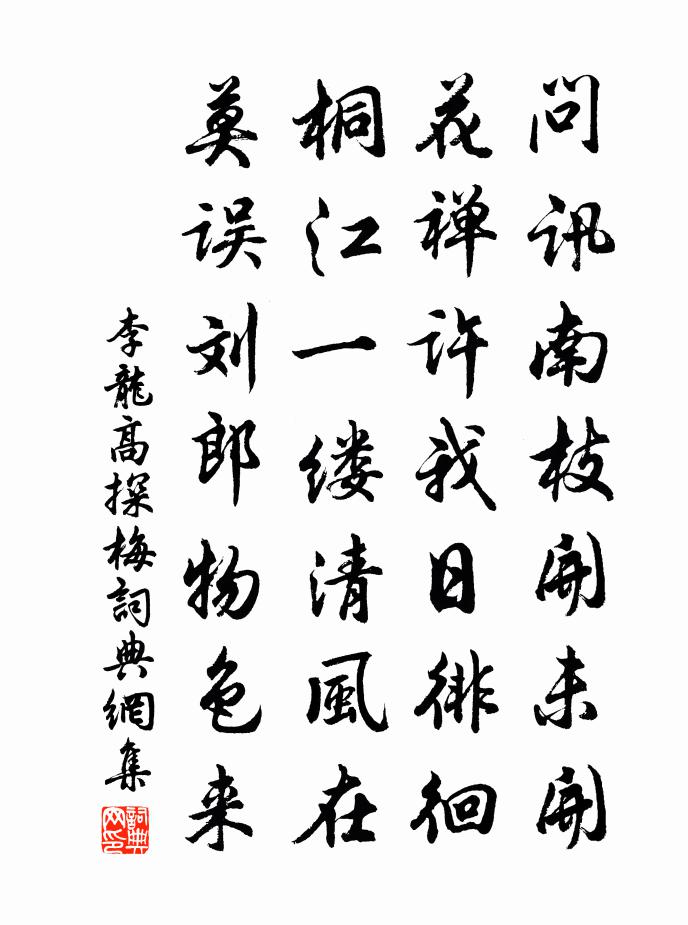 問訊南枝開未開
花禅許我日徘徊
桐江一缕清風在
莫误刘郎物色来
李龍高探梅詞典網集
詞典网印